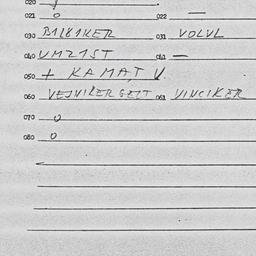 020
021 0 022 —
030 BILBIKER 031 VOLVL
040 UMZIST 041 —
050 + KAMAT V.
060 VEJNIKERGEIT 061 VINCIKER
070 0
080 0